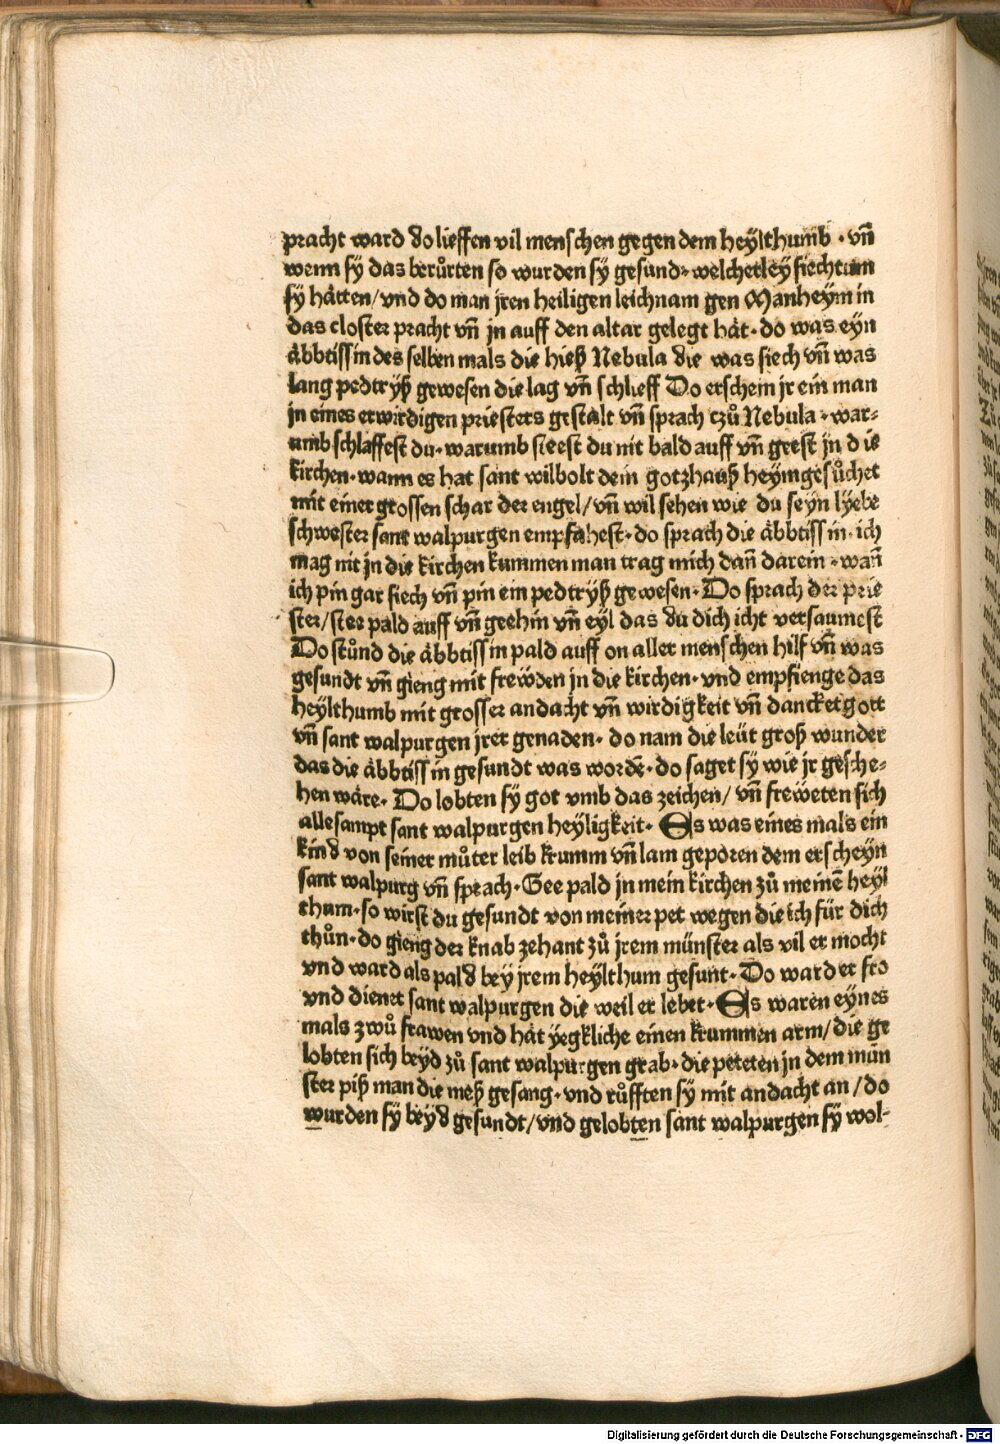 pracht ward do lieffen vil menschen gegen dem heylthumb · vn̄
wenn sy das berůrten so wurden sy gesund· welcherley siechtum
sy håtten/vnd do man jren heiligen leichnam gen Manheym in
das closter pracht vn̄ jn auff den altar gelegt håt· do was eyn
åbbtissin des selben mals die hieß Nebula die was siech vn̄ was
lang pedtryß gewesen die lag vn̄ schlieff Do erschein jr ein man
jn eines erwirdigen priesters gestalt vn̄ sprach czů Nebula · war⸗
umb schlaffest du· warumb steest du nit bald auff vn̄ geest jn die
kirchen· wann es hat sant wilbolt dein gotzhauß heymgesůchet
mit einer grossen schar der engel/vn̄ wil sehen wie du seyn lyebe
schwester sant walpurgen empfahest· do sprach die åbbtissin· ich
mag nit jn die kirchen kummen man trag mich dan̄ darein · wan̄
ich pin gar siech vn̄ pin ein pedtryß gewesen· Do sprach der prie
ster/stee pald auff vn̄ geehin vn̄ eyl das du dich icht versaumest
Do stůnd die åbbtissin pald auff on aller menschen hilf vn̄ was
gesundt vn̄ gieng mit frewden jn die kirchen· vnd empfienge das
heylthumb mit grosser andacht vn̄ wirdigkeit vn̄ dancket gott
vn̄ sant walpurgen jrer genaden· do nam die leüt groß wunder
das die åbbtissin gesundt was wordē· do saget sy wie jr gesche⸗
hen wåre· Do lobten sy got vmb das zeichen/ vn̄ freẅeten sich
allesampt sant walpurgen heyligkeit· Es was eines mals ein
kind von seiner můter leib krumm vn̄ lam geporen dem erscheyn
sant walpurg vn̄ sprach· Gee pald jn mein kirchen zů meinē heyl
thum· so wirst du gesundt von meiner pet wegen die ich für dich
thůn· do gieng der knab zehant zů jrem münster als vil er mocht
vnd ward als pald bey jrem heylthum gesunt· Do ward er fro
vnd dienet sant walpurgen die weil er lebet· Es waren eynes
mals zwů frawen vnd håt yegkliche einen krummen arm/ die ge
lobten sich beyd zů sant walpurgen grab· die peteten jn dem mün
ster piß man die meß gesang· vnd růfften sy mit andacht an /do
wurden sy beyd gesundt/vnd gelobten sant walpurgen sy wol⸗
Digitalisierung gefördert durch die Deutsche Forschungsgemeinschaft - DFG